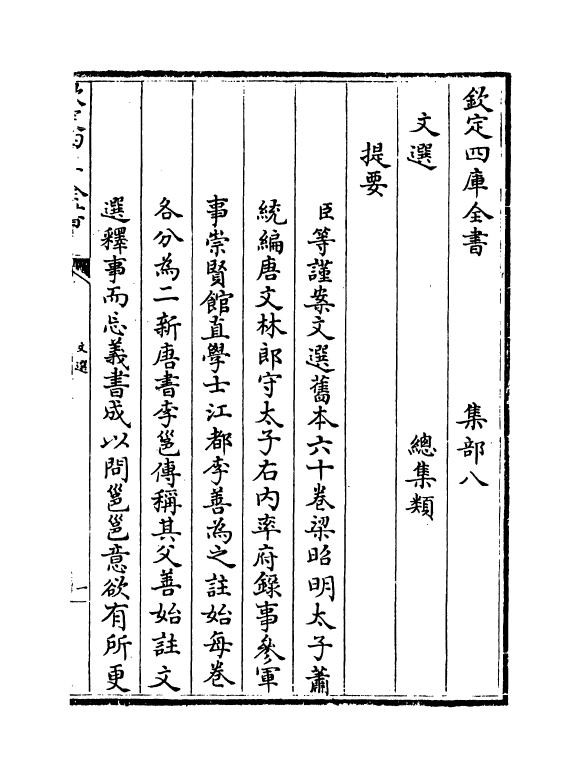 欽定四庫全書　集部八
文選　總集類
提要
臣等謹案文選舊本六十卷梁昭明太子蕭
統編唐文林郎守太子右內率府錄事參軍
事崇賢館直學士江都李善為之註始每卷
各分為二新唐書李邕傳稱其父善始註文
選釋事而忘義書成以問邕邕意欲有所更
文選
一